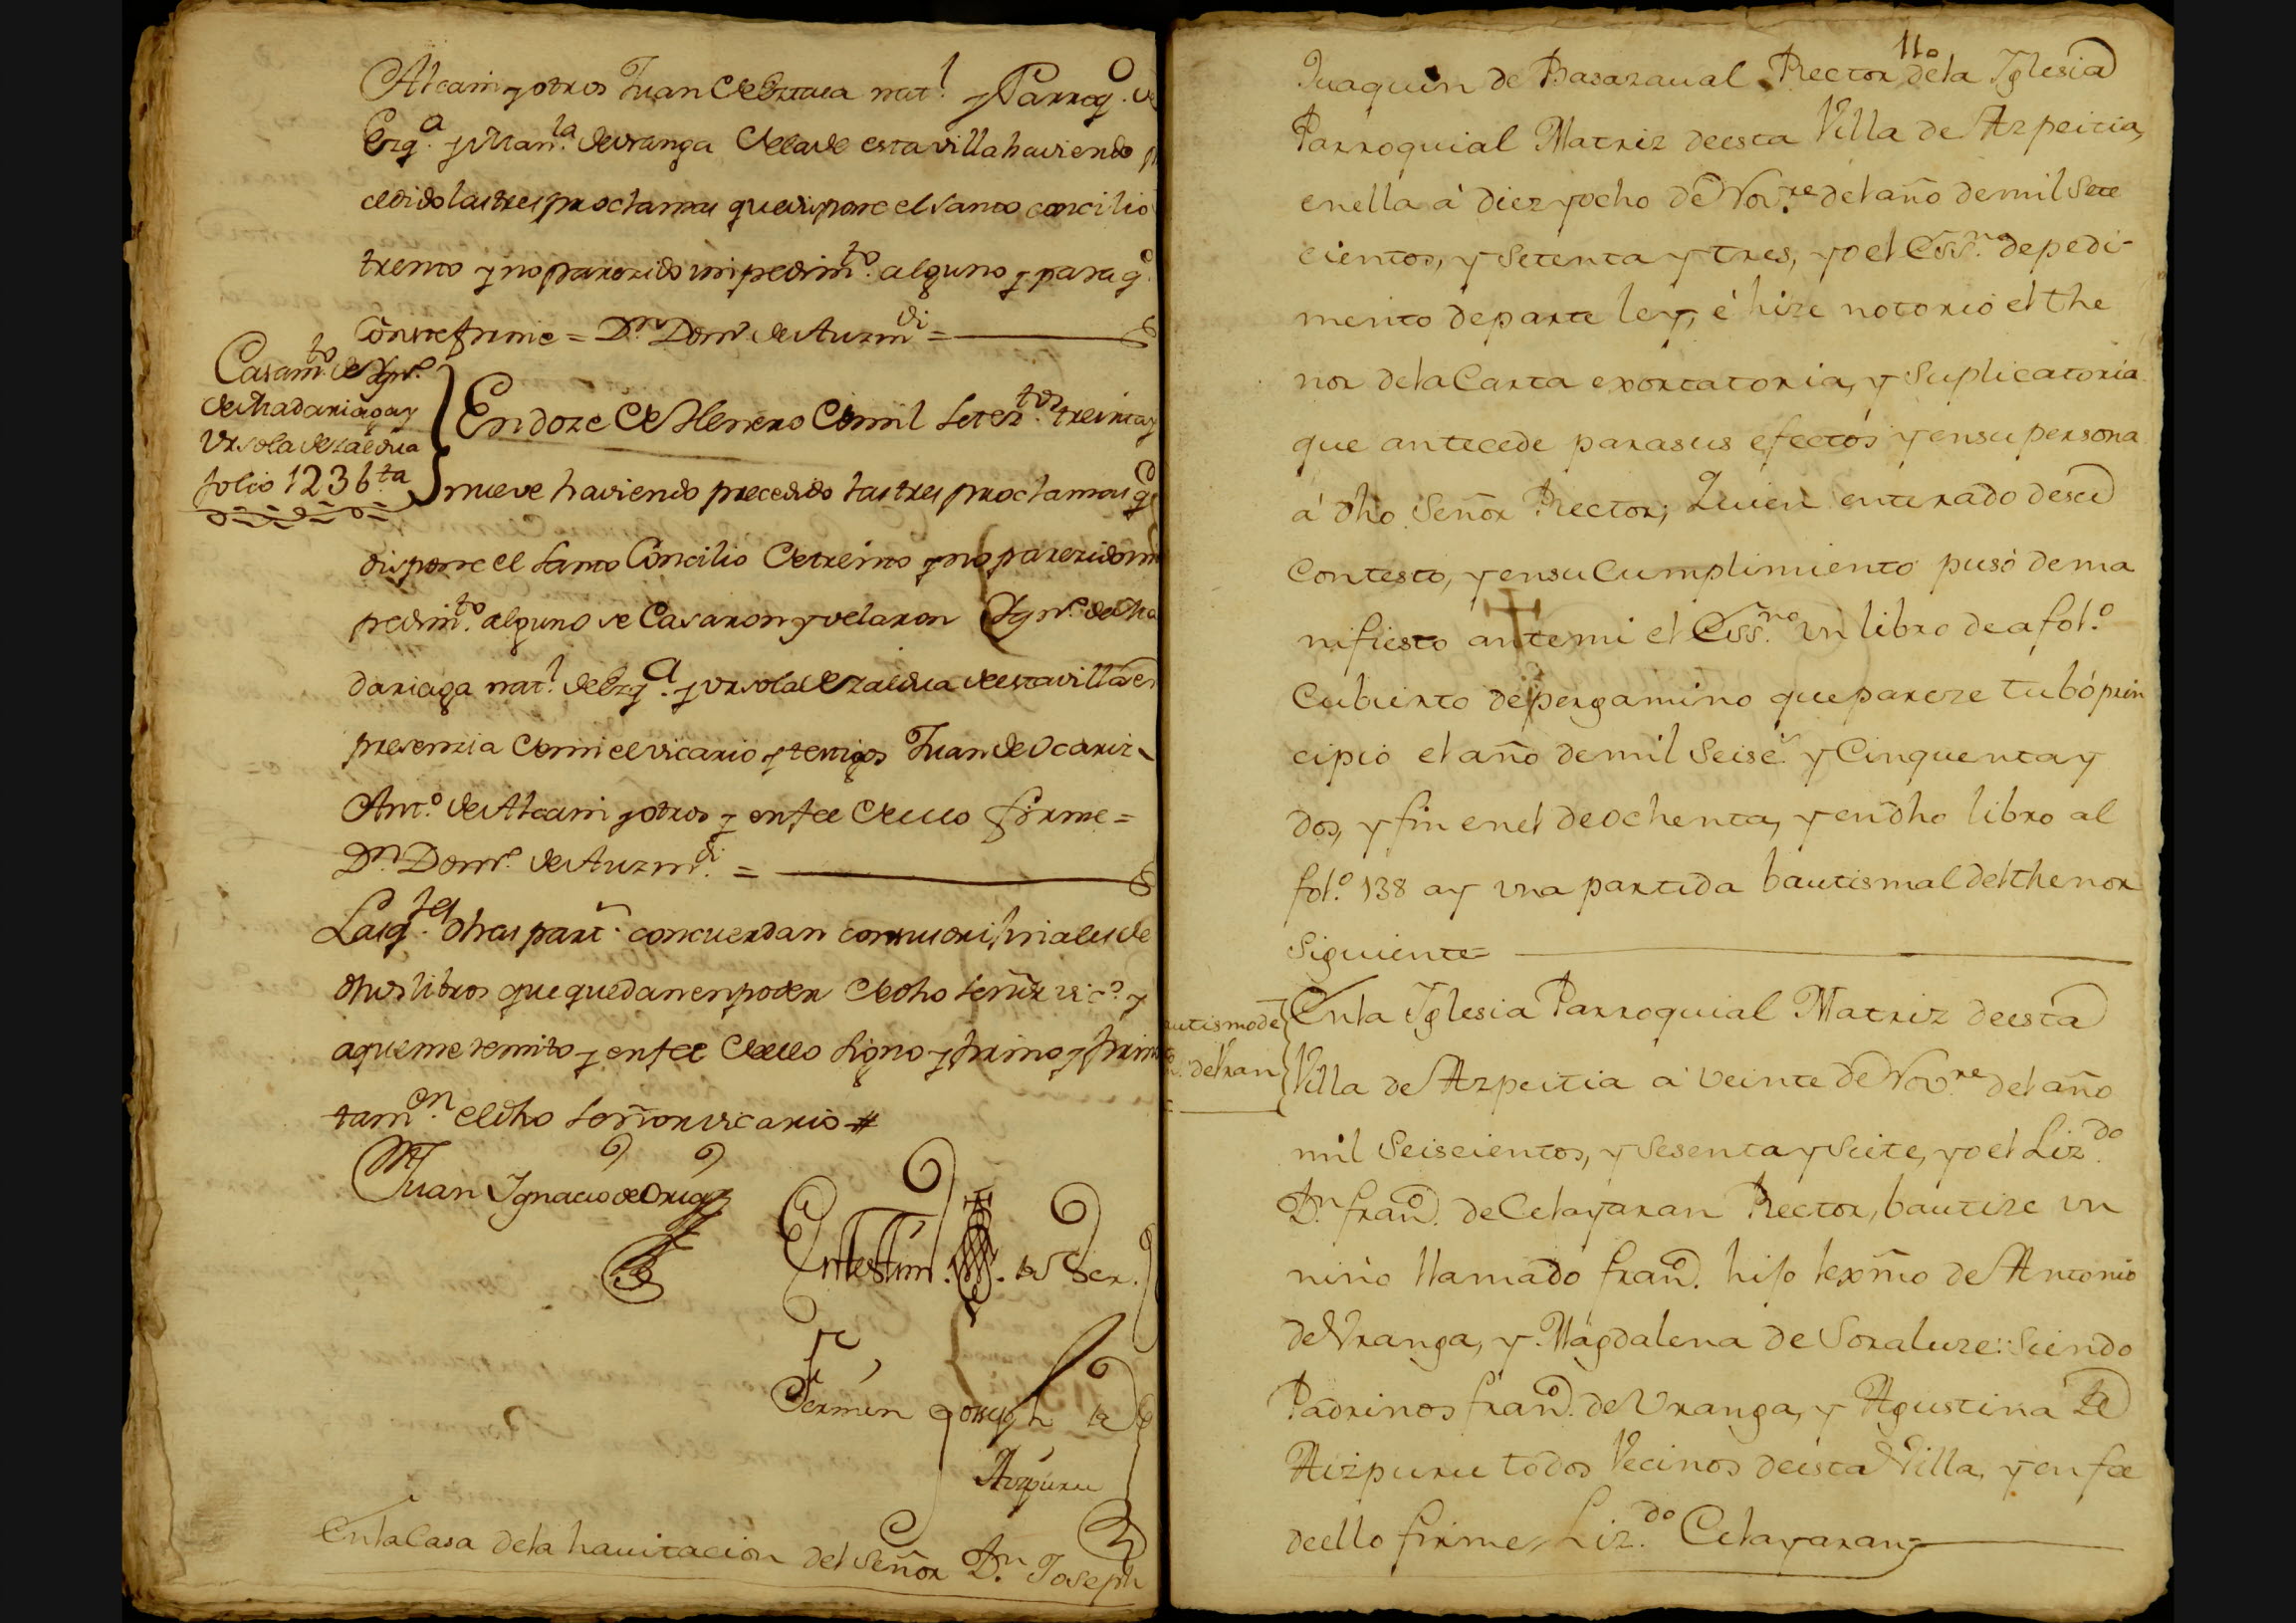 Alcain y otros Juan de Eztala nat.l y Parroq.o de
Ezq.a y Man.la de Vranga de la de esta villa haviendo p
cedido las tres proclamas que dispone el santo concilio
trento y no parezido impedim.to alguno y para q.e
conste firme = D.n Dom.o de Auzm.di =
Casam.to de Ygn.o
de Madariaga y
Vrsola de Zaldua
folio 123 b.ta
En doze de Henero de mil setez.tos treinta y
nueve haviendo precedido las tres proclamas q.e
dispone el santo Concilio de trento y no parezido im
pedim.to alguno se Casaron y velaron Ygn.o de Ma
dariaga nat.l de Ezq.a y Vrsola de Zaldua de esta villa en
presenzia de mi el vicario y testigos Juan de Ocariz
Ant.o de Alcain y otros y en fee de ello firme =
D.n Dom.o de Auzm.di =
Las q.les dhas part.s concuerdan con sus orijinales de
dhos libros que quedan en poder de dho señor vic.o y
a que me remito y en fee de ello signo y firmo y firm
tam.en el dho señor vicario #
Juan Ygnacio de
En testim.o de ver.
Fermin
Aizpuru
En la Casa de la havitacion del Señor D.n Joseph
110
Juaquin de Basazaval Rector de la Yglesia
Parroquial Matriz de esta Villa de Azpeitia,
en ella á diez y ocho de Nov.re del año de mil Sete
cientos, y Setenta y tres, yo el Ess.no de pedi-
mento de parte ley, é hize notorio el the
nor de la Carta exortatoria, y Suplicatoria
que antecede para sus efectos y en su persona
á dho Señor Rector; Quien enterado de su
Contesto, y en su Cumplimiento pusó de ma
nifiesto ante mi el Ess.no un libro de a fol.o
Cubierto de pergamino que pareze tubó prin
cipio el año de mil Seisc.s y Cinquenta y
dos, y fin en el de ochenta, y en dho libro al
fol.o 138 ay una partida bautismal del thenor
Siguiente
utismo de
de Fran
En la Yglesia Parroquial Matriz de esta
Villa de Azpeitia á veinte de Nov.re del año
mil Seiscientos, y Sesenta y Seite, yo el Liz.do
D.n fran.co de Celayaran Rector, bautize un
niño llamado fran.co hijo lexmo de Antonio
de Vranga, y Magdalena de Soraluze: Siendo
Padrinos fran.co de Vranga, y Agustina de
Aizpuru todos Vecinos de esta Villa, y en fee
de ello firme, Liz.do Celayaran =